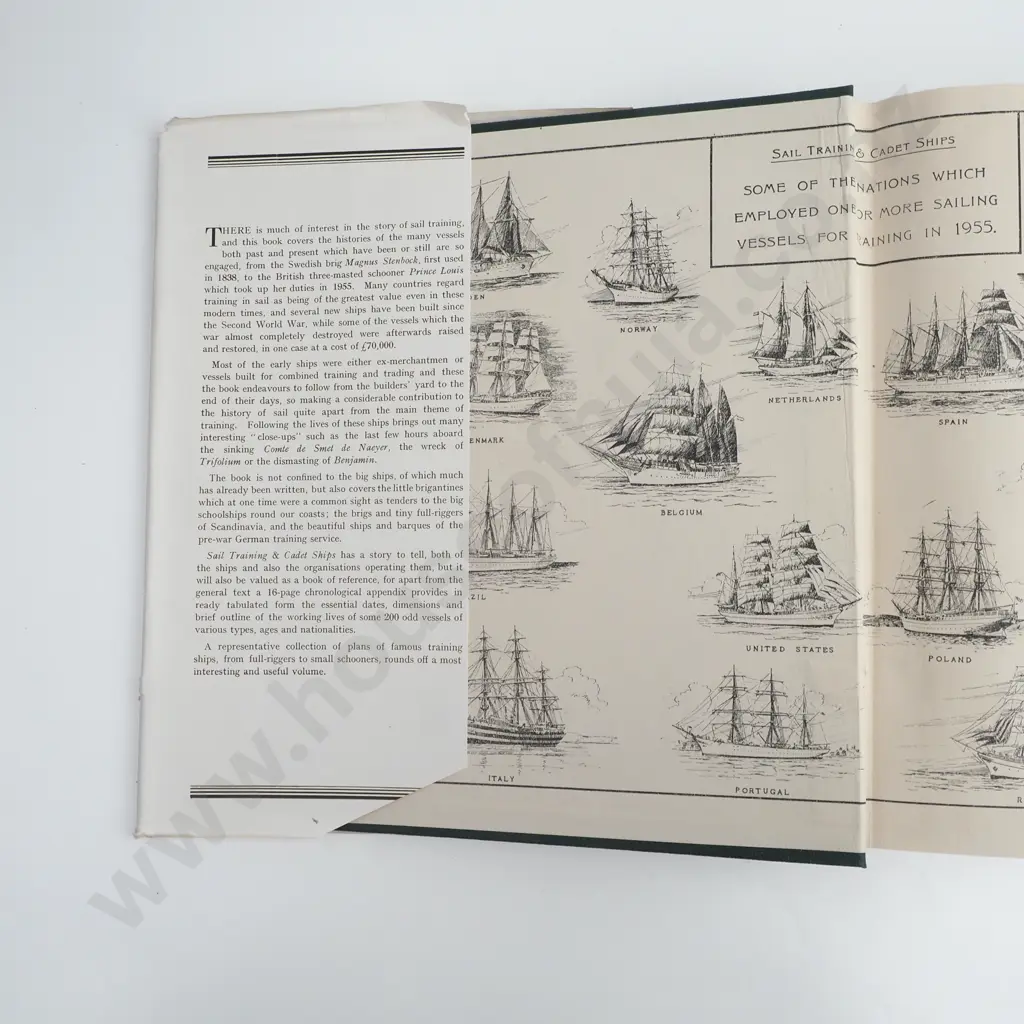 THERE is much of interest in the story of sail training,
and this book covers the histories of the many vessels
both past and present which have been or still are so
engaged, from the Swedish brig Magnus Stenbock, first used
in 1838, to the British three-masted schooner Prince Louis
which took up her duties in 1955. Many countries regard
training in sail as being of the greatest value even in these
modern times, and several new ships have been built since
the Second World War, while some of the vessels which the
war almost completely destroyed were afterwards raised
and restored, in one case at a cost of £70,000.
Most of the early ships were either ex-merchantmen or
vessels built for combined training and trading and these
the book endeavours to follow from the builders' yard to the
end of their days, so making a considerable contribution to
the history of sail quite apart from the main theme of
training. Following the lives of these ships brings out many
interesting "close-ups" such as the last few hours aboard
the sinking Comte de Smet de Naeyer, the wreck of
Trifolium or the dismasting of Benjamin.
The book is not confined to the big ships, of which much
has already been written, but also covers the little brigantines
which at one time were a common sight as tenders to the big
schoolships round our coasts; the brigs and tiny full-riggers
of Scandinavia, and the beautiful ships and barques of the
pre-war German training service.
Sail Training & Cadet Ships has a story to tell, both of
the ships and also the organisations operating them, but it
will also be valued as a book of reference, for apart from the
general text a 16-page chronological appendix provides in
ready tabulated form the essential dates, dimensions and
brief outline of the working lives of some 200 odd vessels of
various types, ages and nationalities.
A representative collection of plans of famous training
ships, from full-riggers to small schooners, rounds off a most
interesting and useful volume.
SAIL TRAINING & CADET SHIPS
SOME OF THE NATIONS WHICH
EMPLOYED ONE OR MORE SAILING
VESSELS FOR TRAINING IN 1955.
EN
NORWAY
NETHERLANDS
SPAIN
ENMARK
BELGIUM
ZIL
UNITED STATES
POLAND
ITALY
PORTUGAL
R